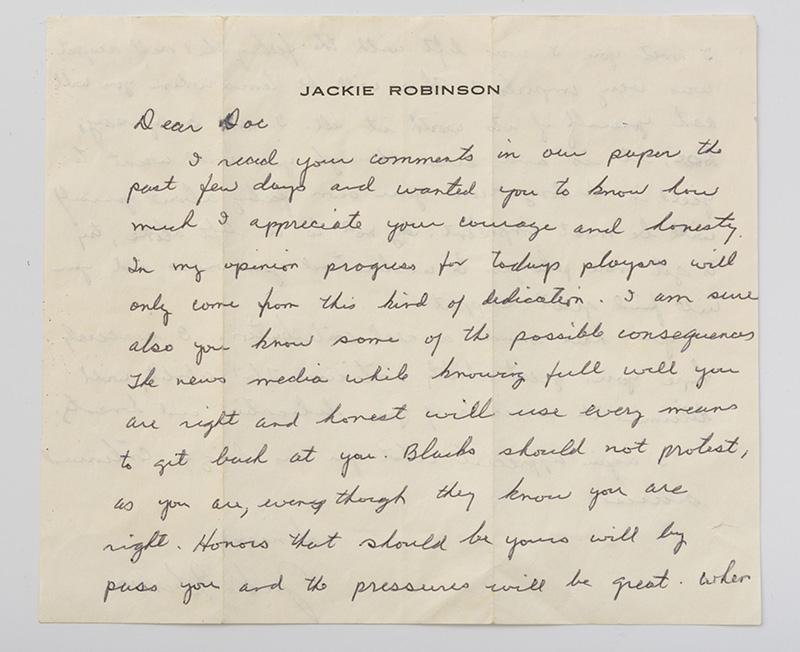 JACKIE ROBINSON
Dear Doc
I read your comments in our paper the
past few days and wanted you to know how
much I appreciate your courage and honesty.
In my opinion progress for todays players will
only come from this kind of dedication. I am sure
also you know some of the possible consequences
The news media while knowing full will you
are right and honest will use every means
to get back at you. Blacks should not protest,
as you are, even though they know you are
right. Honors that should be yours will by
pass you and the pressures will be great. When